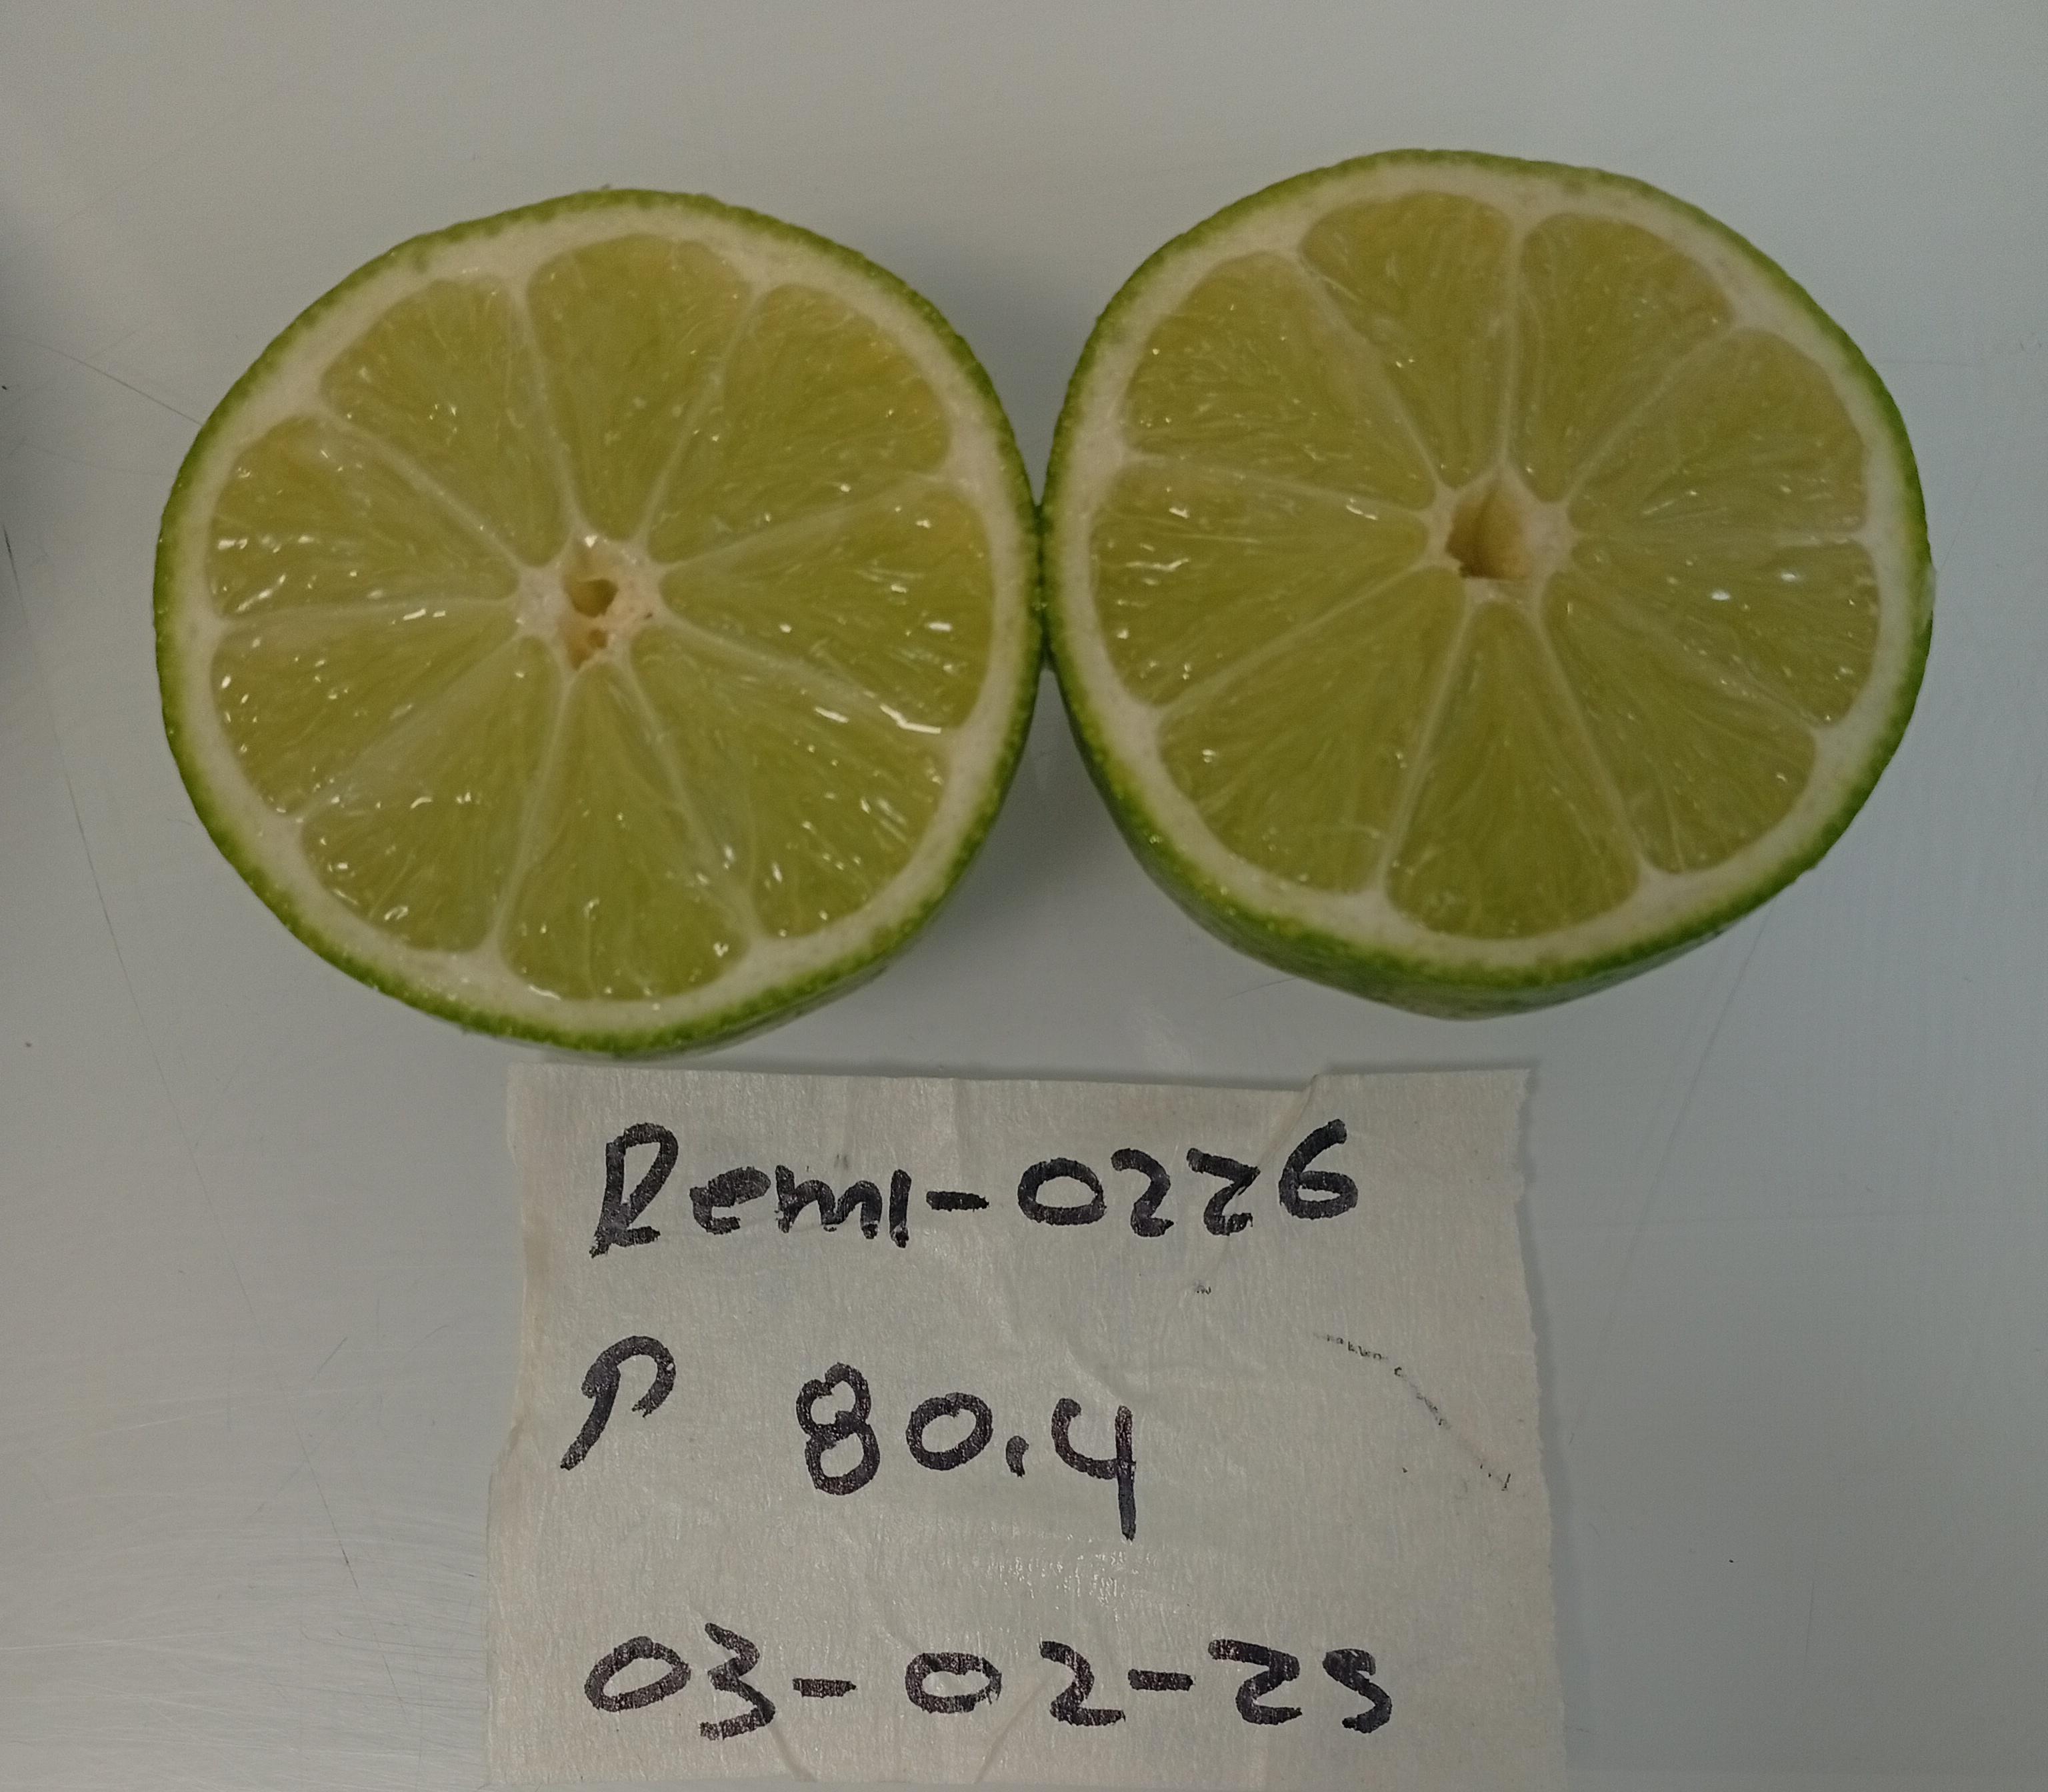 Remi-0226
P 80.4
03-02-25